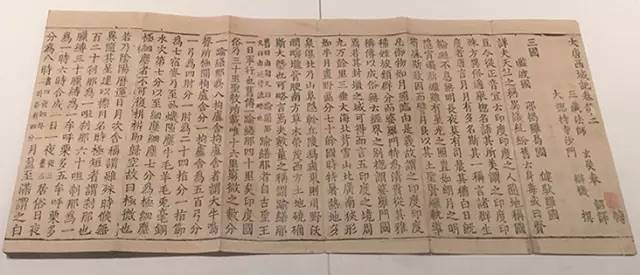 大唐西域記卷第二
三藏法師 玄奘奉 詔譯
大總持寺沙門 辯機 撰
三國
濫波國 那揭羅曷國 健馱邏國
詳夫天竺之稱異議糺紛舊云身毒或曰賢
豆今從正音宜云印度印度之人隨地稱國
殊方異俗遙舉總名語其所美謂之印度印
度者唐言月月有多名斯其一稱言諸群生
輪迴不息無明長夜莫有司晨其猶白日既隱
宵燭斯繼雖有星光之照豈如朗月之明
苟緣斯致因而譬月良以其土聖賢繼軌導
凡御物如月照臨由是義故謂之印度印度
種姓族類群分而婆羅門特為清貴從其雅
稱傳以成俗無云經界之別總謂婆羅門國
焉若其封疆之域可得而言五印度之境周
九萬餘里三垂大海北背雪山北廣南狹形
如半月畫野區分七十餘國時特暑熱地多
泉濕北乃山阜隱軫丘陵舄鹵東則川野沃
潤疇壟膏腴南方草木榮茂西方土地磽确
斯大概也可略言焉夫數量之稱謂踰繕那
踰繕那者自古聖王
一日軍行也舊傳一踰繕那四十里矣印度國
俗乃三十里聖教所載唯十六里窮微之數分
一踰繕那為八拘盧舍拘盧舍者謂大牛鳴
聲所極聞稱拘盧舍分一拘盧舍為五百弓分
一弓為四肘分一肘為二十四指分一指節
為七宿麥乃至虱蟣隙塵牛毛羊毛兔毫銅
水次第七分以至細塵細塵七分為極細塵
極細塵者不可復析析即歸空故曰極微也
若乃陰陽曆運日月次舍稱謂雖殊時候無
異隨其星建以標月名時極短者謂剎那也
百二十剎那為一呾剎那六十呾剎那為一
臘縛三十臘縛為一牟呼栗多五牟呼栗多
為一時六時合成一日一夜居俗日夜
分為八時月盈至滿謂之白